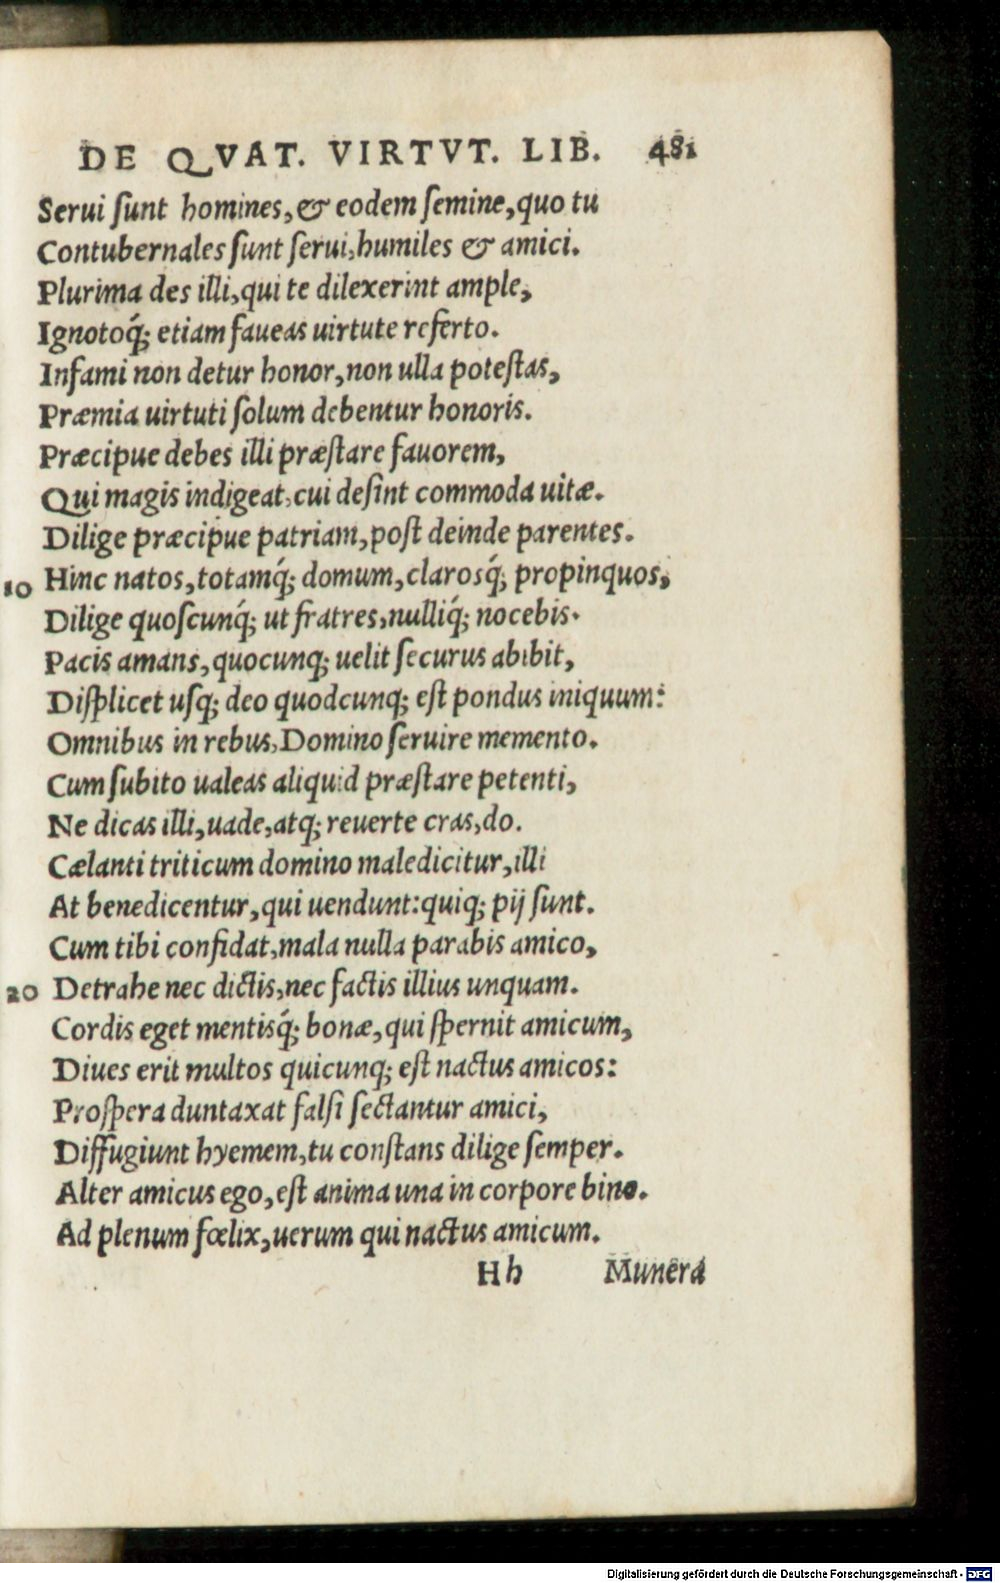 DE QVAT. VIRTVT. LIB. 481
Serui ſunt homines, & eodem ſemine, quo tu
Contubernales ſunt ſerui, humiles & amici.
Plurima des illi, qui te dilexerint ample,
Ignotoq́; etiam faueas uirtute referto.
Infami non detur honor, non ulla poteſtas,
Præmia uirtuti ſolum debentur honoris.
Præcipue debes illi præſtare fauorem,
Qui magis indigeat, cui deſint commoda uitæ.
Dilige præcipue patriam, poſt deinde parentes.
10 Hinc natos, totamq́; domum, clarosq́; propinquos,
Dilige quoſcunq́; ut fratres, nulliq́; nocebis.
Pacis amans, quocunq; uelit ſecurus abibit,
Diſplicet uſq; deo quodcunq; eſt pondus iniquum:
Omnibus in rebus, Domino ſeruire memento.
Cum ſubito ualeas aliquid præſtare petenti,
Ne dicas illi, uade, atq; reuerte cras, do.
Cælanti triticum domino maledicitur, illi
At benedicentur, qui uendunt: quiq; pij ſunt.
Cum tibi confidat, mala nulla parabis amico,
20 Detrahe nec dictis, nec factis illius unquam.
Cordis eget mentisq́; bonæ, qui ſpernit amicum,
Diues erit multos quicunq; eſt nactus amicos:
Proſpera duntaxat falſi ſectantur amici,
Diffugiunt hyemem, tu conſtans dilige ſemper.
Alter amicus ego, eſt anima una in corpore bino.
Ad plenum fœlix, uerum qui nactus amicum.
Hh Munera
Digitalisierung gefördert durch die Deutsche Forschungsgemeinschaft - DFG